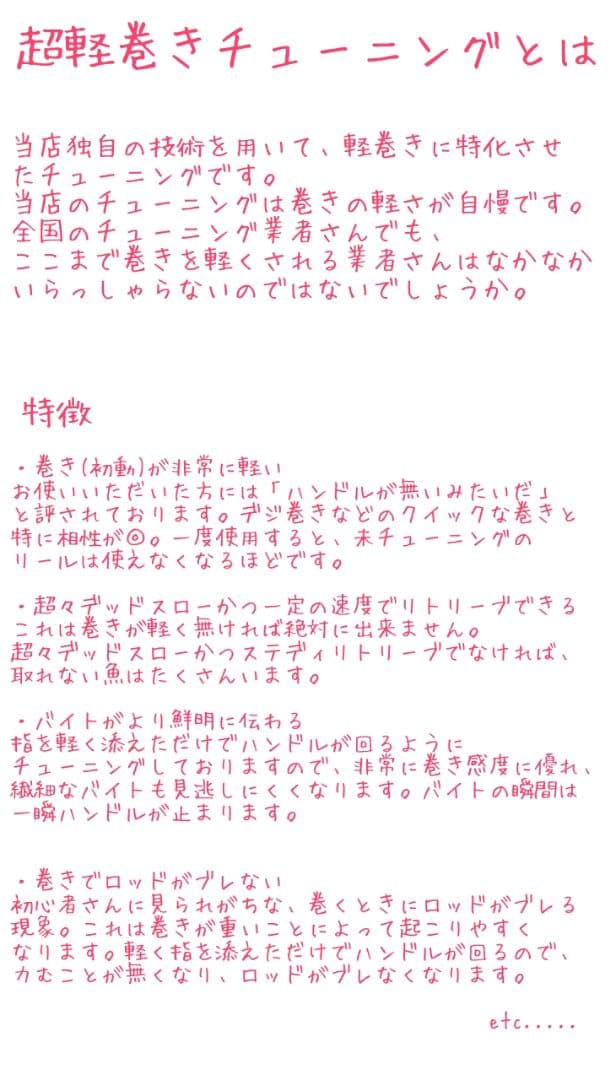 超軽巻きチューニングとは
当店独自の技術を用いて、軽巻きに特化させ
たチューニングです。
当店のチューニングは巻きの軽さが自慢です。
全国のチューニング業者さんでも、
ここまで巻きを軽くされる業者さんはなかなか
いらっしゃらないのではないでしょうか。
特徴
・巻き(初動)が非常に軽い
お使いいただいた方には「ハンドルが無いみたいだ」
と評されております。デジ巻きなどのクイックな巻きと
特に相性が◎。一度使用すると、未チューニングの
リールは使えなくなるほどです。
・超々デッドスローかつ一定の速度でリトリーブできる
これは巻きが軽く無ければ絶対に出来ません。
超々デッドスローかつステディリトリーブでなければ、
取れない魚はたくさんいます。
・バイトがより鮮明に伝わる
指を軽く添えただけでハンドルが回るように
チューニングしておりますので、非常に巻き感度に優れ、
繊細なバイトも見逃しにくくなります。バイトの瞬間は
一瞬ハンドルが止まります。
・巻きでロッドがブレない
初心者さんに見られがちな、巻くときにロッドがブレる
現象。これは巻きが重いことによって起こりやすく
なります。軽く指を添えただけでハンドルが回るので、
力むことが無くなり、ロッドがブレなくなります。
etc.....